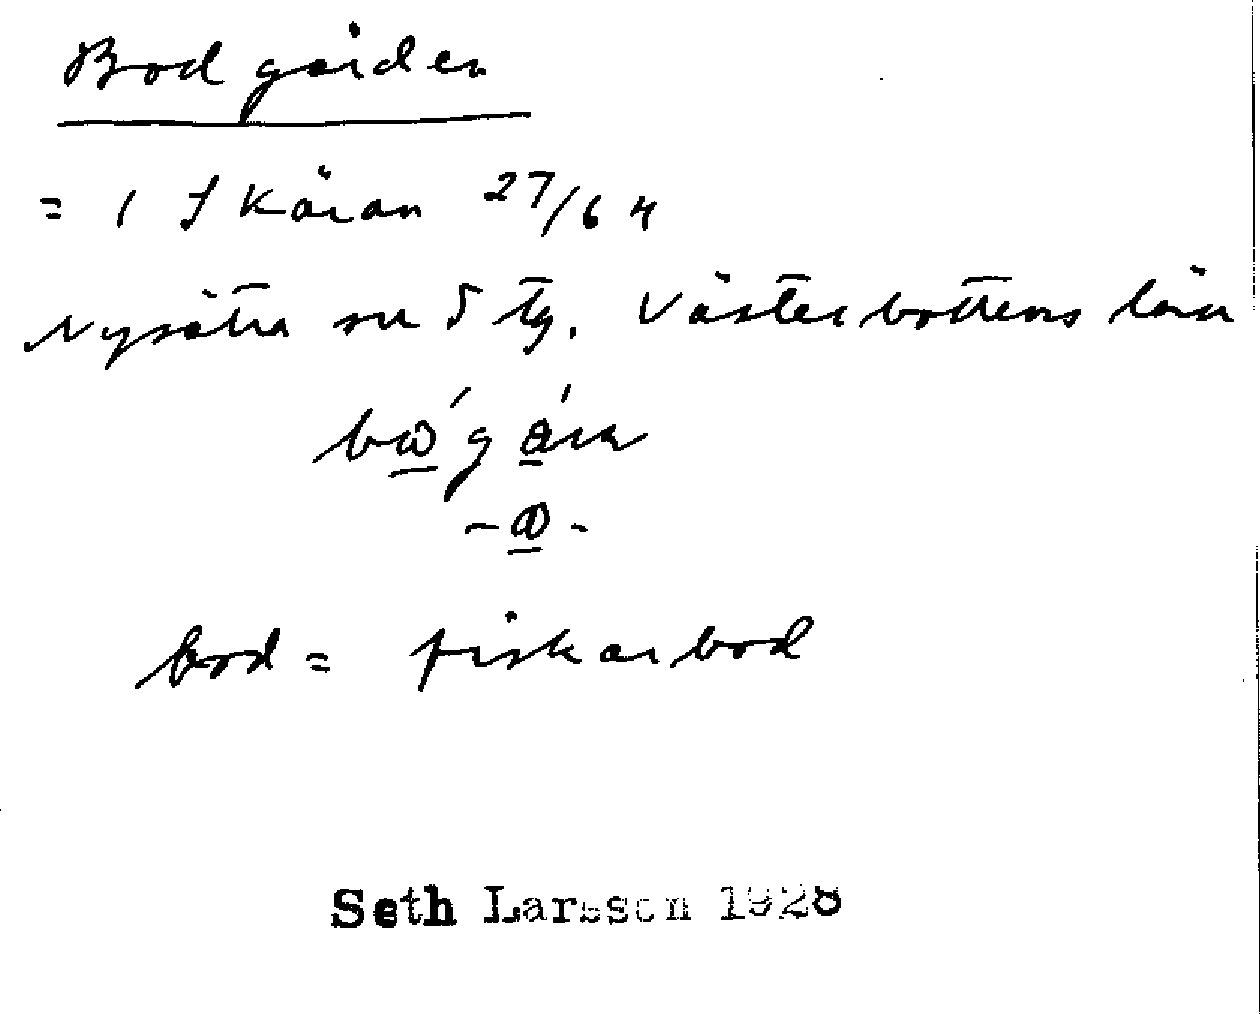 Bodgården
= 1 Skäran 27/64
Nysätra sn S tg. Västerbottens län
bo̲´gå̲´rn
bod = fiskarbod
Seth Larsson 1928